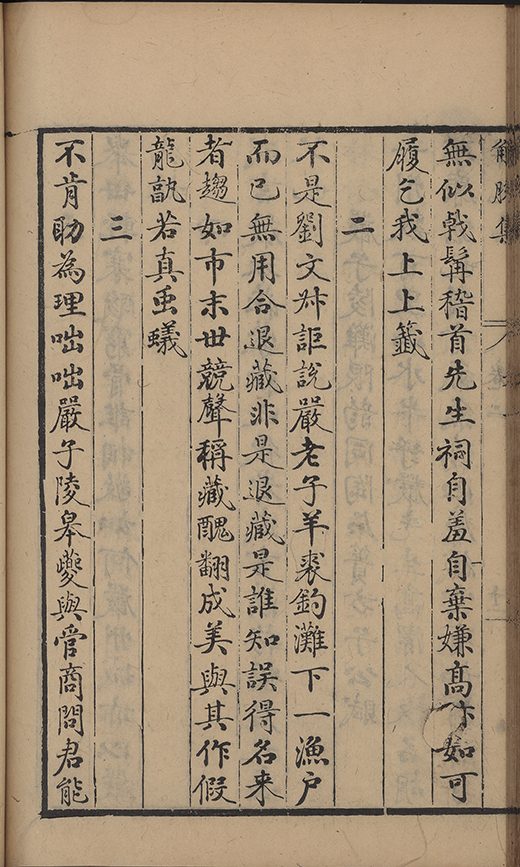 解脫集
無似戟髯稽首先生祠自羞自棄嫌高如可
履乞我上上籤
二
不是劉文叔詎說嚴老子羊裘釣灘下一漁戶
而已無用合退藏非是退藏是誰知誤得名来
者趨如市末世競聲稱藏醜翻成美與其作假
龍孰若真虫蟻
三
不肯助為理咄咄嚴子陵皋夔與管商問君能